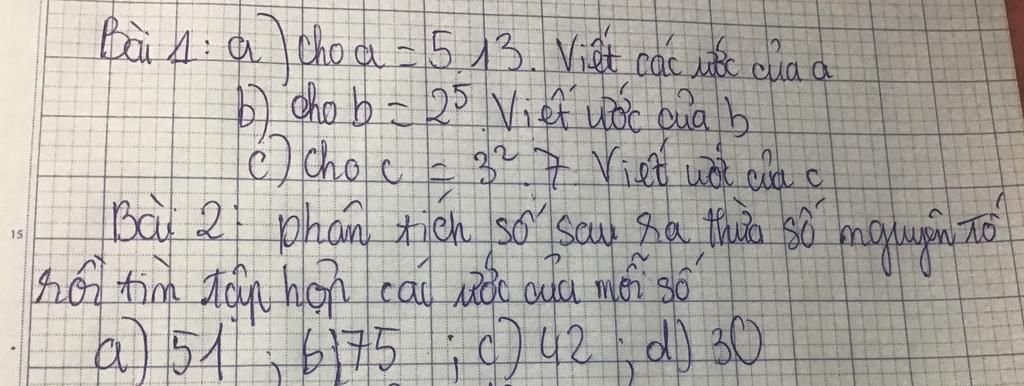 Bài 1: a) cho a = 5.13. Viết các ước của a
b) cho b = 2⁵. Viết ước của b
c) cho c = 3².7 Viết ước của c
Bài 2: phân tích số sau ra thừa số nguyên tố
rồi tìm tập hợp các ước của mỗi số
a) 51 ; b) 75 ; c) 42 ; d) 30
15